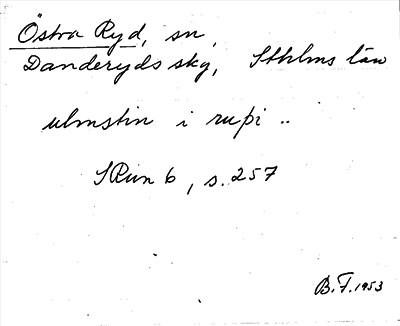 Östra Ryd, sn,
Danderyds skg, Sthlms län
ulmstin i rupi ..
SRun 6, s. 257
B.F. 1953